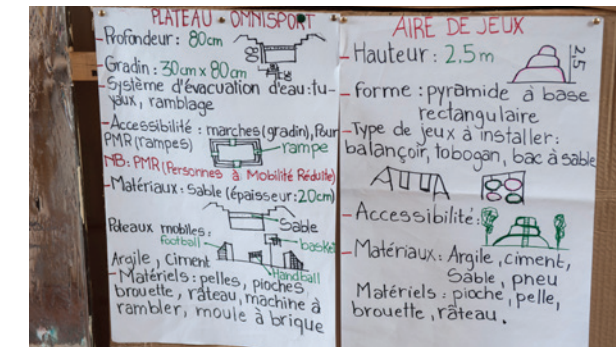 PLATEAU OMNISPORT
- Profondeur : 80cm
- Gradin : 30cm x 80cm
- Système d'évacuation d'eau : tu-
yaux, ramblage
- Accessibilité : marches (gradin), Pour
PMR (rampes)
rampe
NB: PMR (Personnes à Mobilité Réduite)
- Matériaux : Sable (épaisseur : 20cm)
Sable
Poteaux mobiles :
football
basket
Handball
Argile, Ciment
- Matériels : pelles, pioches
brouette, râteau, machine à
rambler, moule à brique
AIRE DE JEUX
- Hauteur : 2,5m
2,5
- forme : pyramide à base
rectangulaire
- Type de jeux à installer :
balançoir, tobogan, bac à sable
- Accessibilité :
- Matériaux : Argile, ciment,
Sable, pneu
Matériels : pioche, pelle,
brouette, râteau.